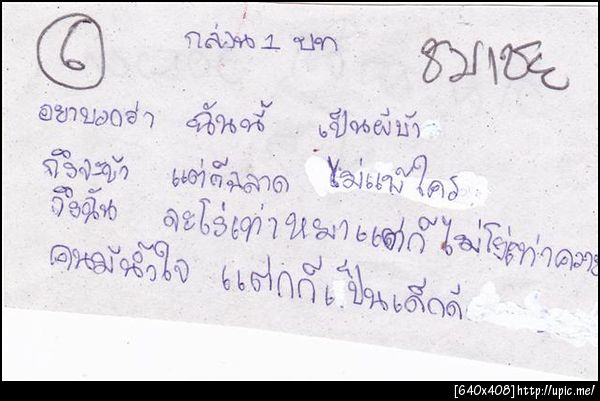 6 กล่อน 1 บท ชมเชย
อยาบอกว่า ฉันนี้ เป็นผีบ้า
ถึงจะบ้า แต่ก็ฉลาด ไม่แพ้ใคร
ถึงฉัน จะโง่เท่าหมาแต่ก็ไม่โง่เท่าควาย
คนมีน้ำใจ แต่กก็เป็นเด็กดี
[640x408]http://upic.me/